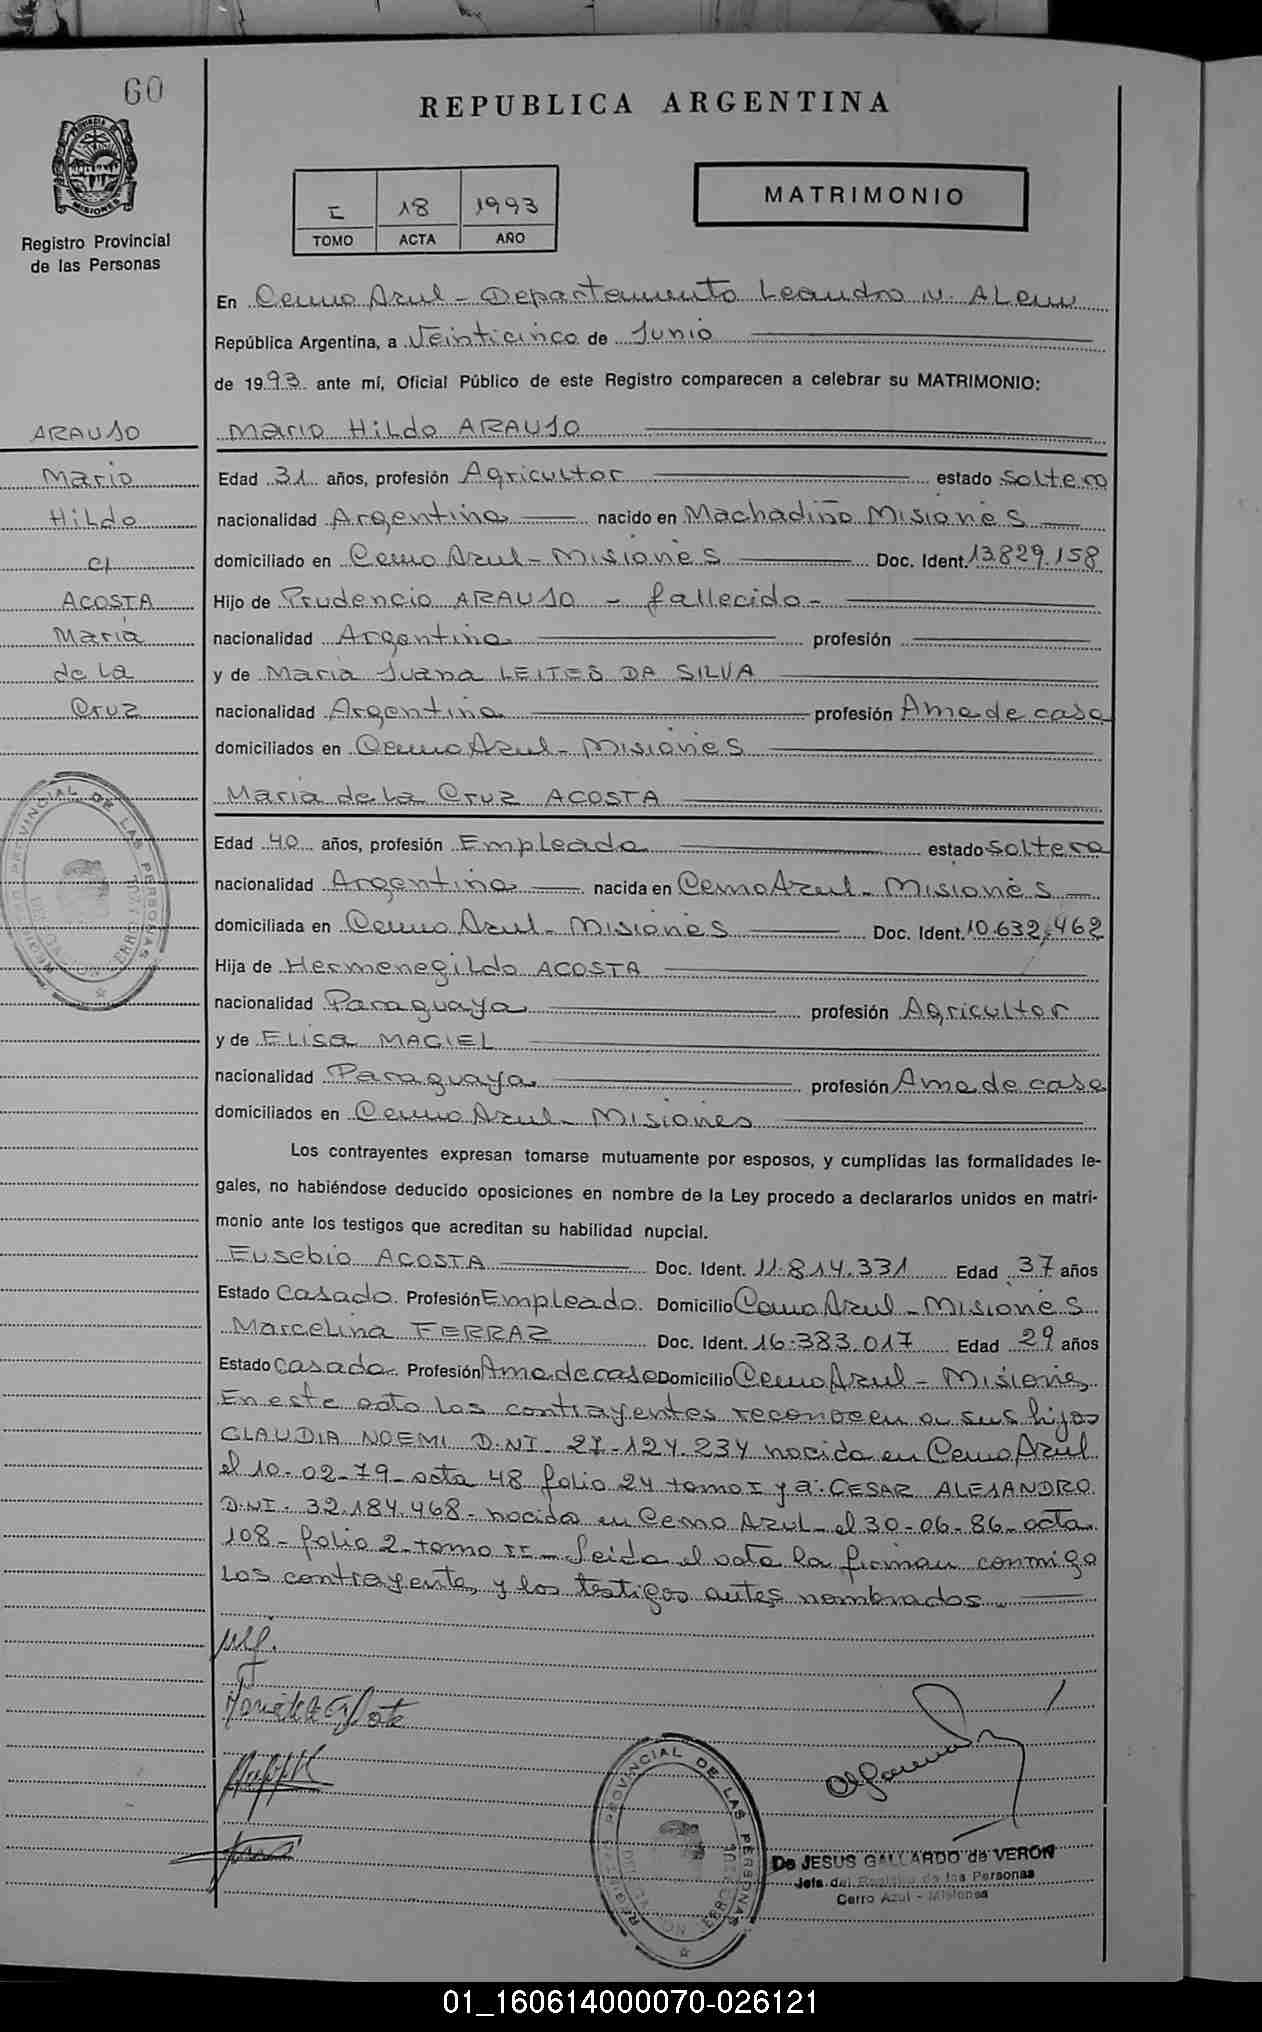 60
REPUBLICA ARGENTINA
PROVINCIA DE
MISIONES
Registro Provincial
de las Personas
I 18 1993
TOMO ACTA AÑO
MATRIMONIO
En Cerro Azul - Departamento Leandro N. ALem
República Argentina, a Veinticinco de Junio
de 1993 ante mí, Oficial Público de este Registro comparecen a celebrar su MATRIMONIO:
Mario HiLdo ARAUJO
ARAUJO
Mario
HiLdo
c/
ACOSTA
María
de La
Cruz
Edad 31 años, profesión Agricultor estado soltero
nacionalidad Argentina nacido en Machadiño Misiones
domiciliado en Cerro Azul - Misiones Doc. Ident. 13.829.158
Hijo de Prudencio ARAUJO - fallecido -
nacionalidad Argentina profesión
y de María Juana LEITES DA SILVA
nacionalidad Argentina profesión Ama de casa
domiciliados en Cerro Azul - Misiones
María de La Cruz ACOSTA
Edad 40 años, profesión Empleada estado soltera
nacionalidad Argentina nacida en Cerro Azul - Misiones
domiciliada en Cerro Azul - Misiones Doc. Ident. 10.632.462
Hija de HermenegiLdo ACOSTA
nacionalidad Paraguaya profesión Agricultor
y de ELisa MACIEL
nacionalidad Paraguaya profesión Ama de casa
domiciliados en Cerro Azul - Misiones
Los contrayentes expresan tomarse mutuamente por esposos, y cumplidas las formalidades le-
gales, no habiéndose deducido oposiciones en nombre de la Ley procedo a declararlos unidos en matri-
monio ante los testigos que acreditan su habilidad nupcial.
Eusebio ACOSTA Doc. Ident. 11.814.331 Edad 37 años
Estado Casado. Profesión Empleado. Domicilio Cerro Azul - Misiones
Marcelina FERRAZ Doc. Ident. 16.383.017 Edad 29 años
Estado Casada. Profesión Ama de casa Domicilio Cerro Azul - Misiones
En este acto los contrayentes reconocen a sus hijos
CLAUDIA NOEMI D.NI. 27-124.234 nacida en Cerro Azul
el 10-02-79 - acta 48 folio 24 tomo I y a: CESAR ALEJANDRO
D.NI. 32.184.468 - nacido en Cerro Azul - el 30-06-86 - acta
108 - folio 2 - tomo II - Leida el acta la firman conmigo
Los contrayentes y los testigos antes nombrados.
REGISTRO PROVINCIAL DE LAS PERSONAS
De JESUS GALLARDO de VERON
Jefa del Registro de las Personas
Cerro Azul - Misiones
01_160614000070-026121